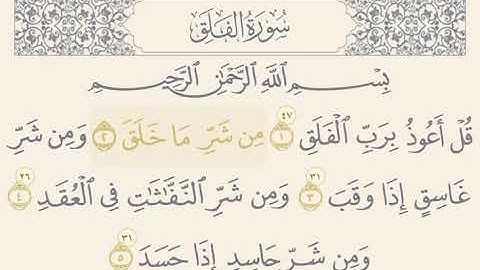 سُورَةُ الفَلَقِ
بِسْمِ اللَّهِ الرَّحْمَٰنِ الرَّحِيمِ
قُلْ أَعُوذُ بِرَبِّ الْفَلَقِ ١ ٤٧ مِن شَرِّ مَا خَلَقَ ٢ وَمِن شَرِّ
غَاسِقٍ إِذَا وَقَبَ ٣ ٣١ وَمِن شَرِّ النَّفَّاثَاتِ فِي الْعُقَدِ ٤ ٢٦
وَمِن شَرِّ حَاسِدٍ إِذَا حَسَدَ ٥ ٣١